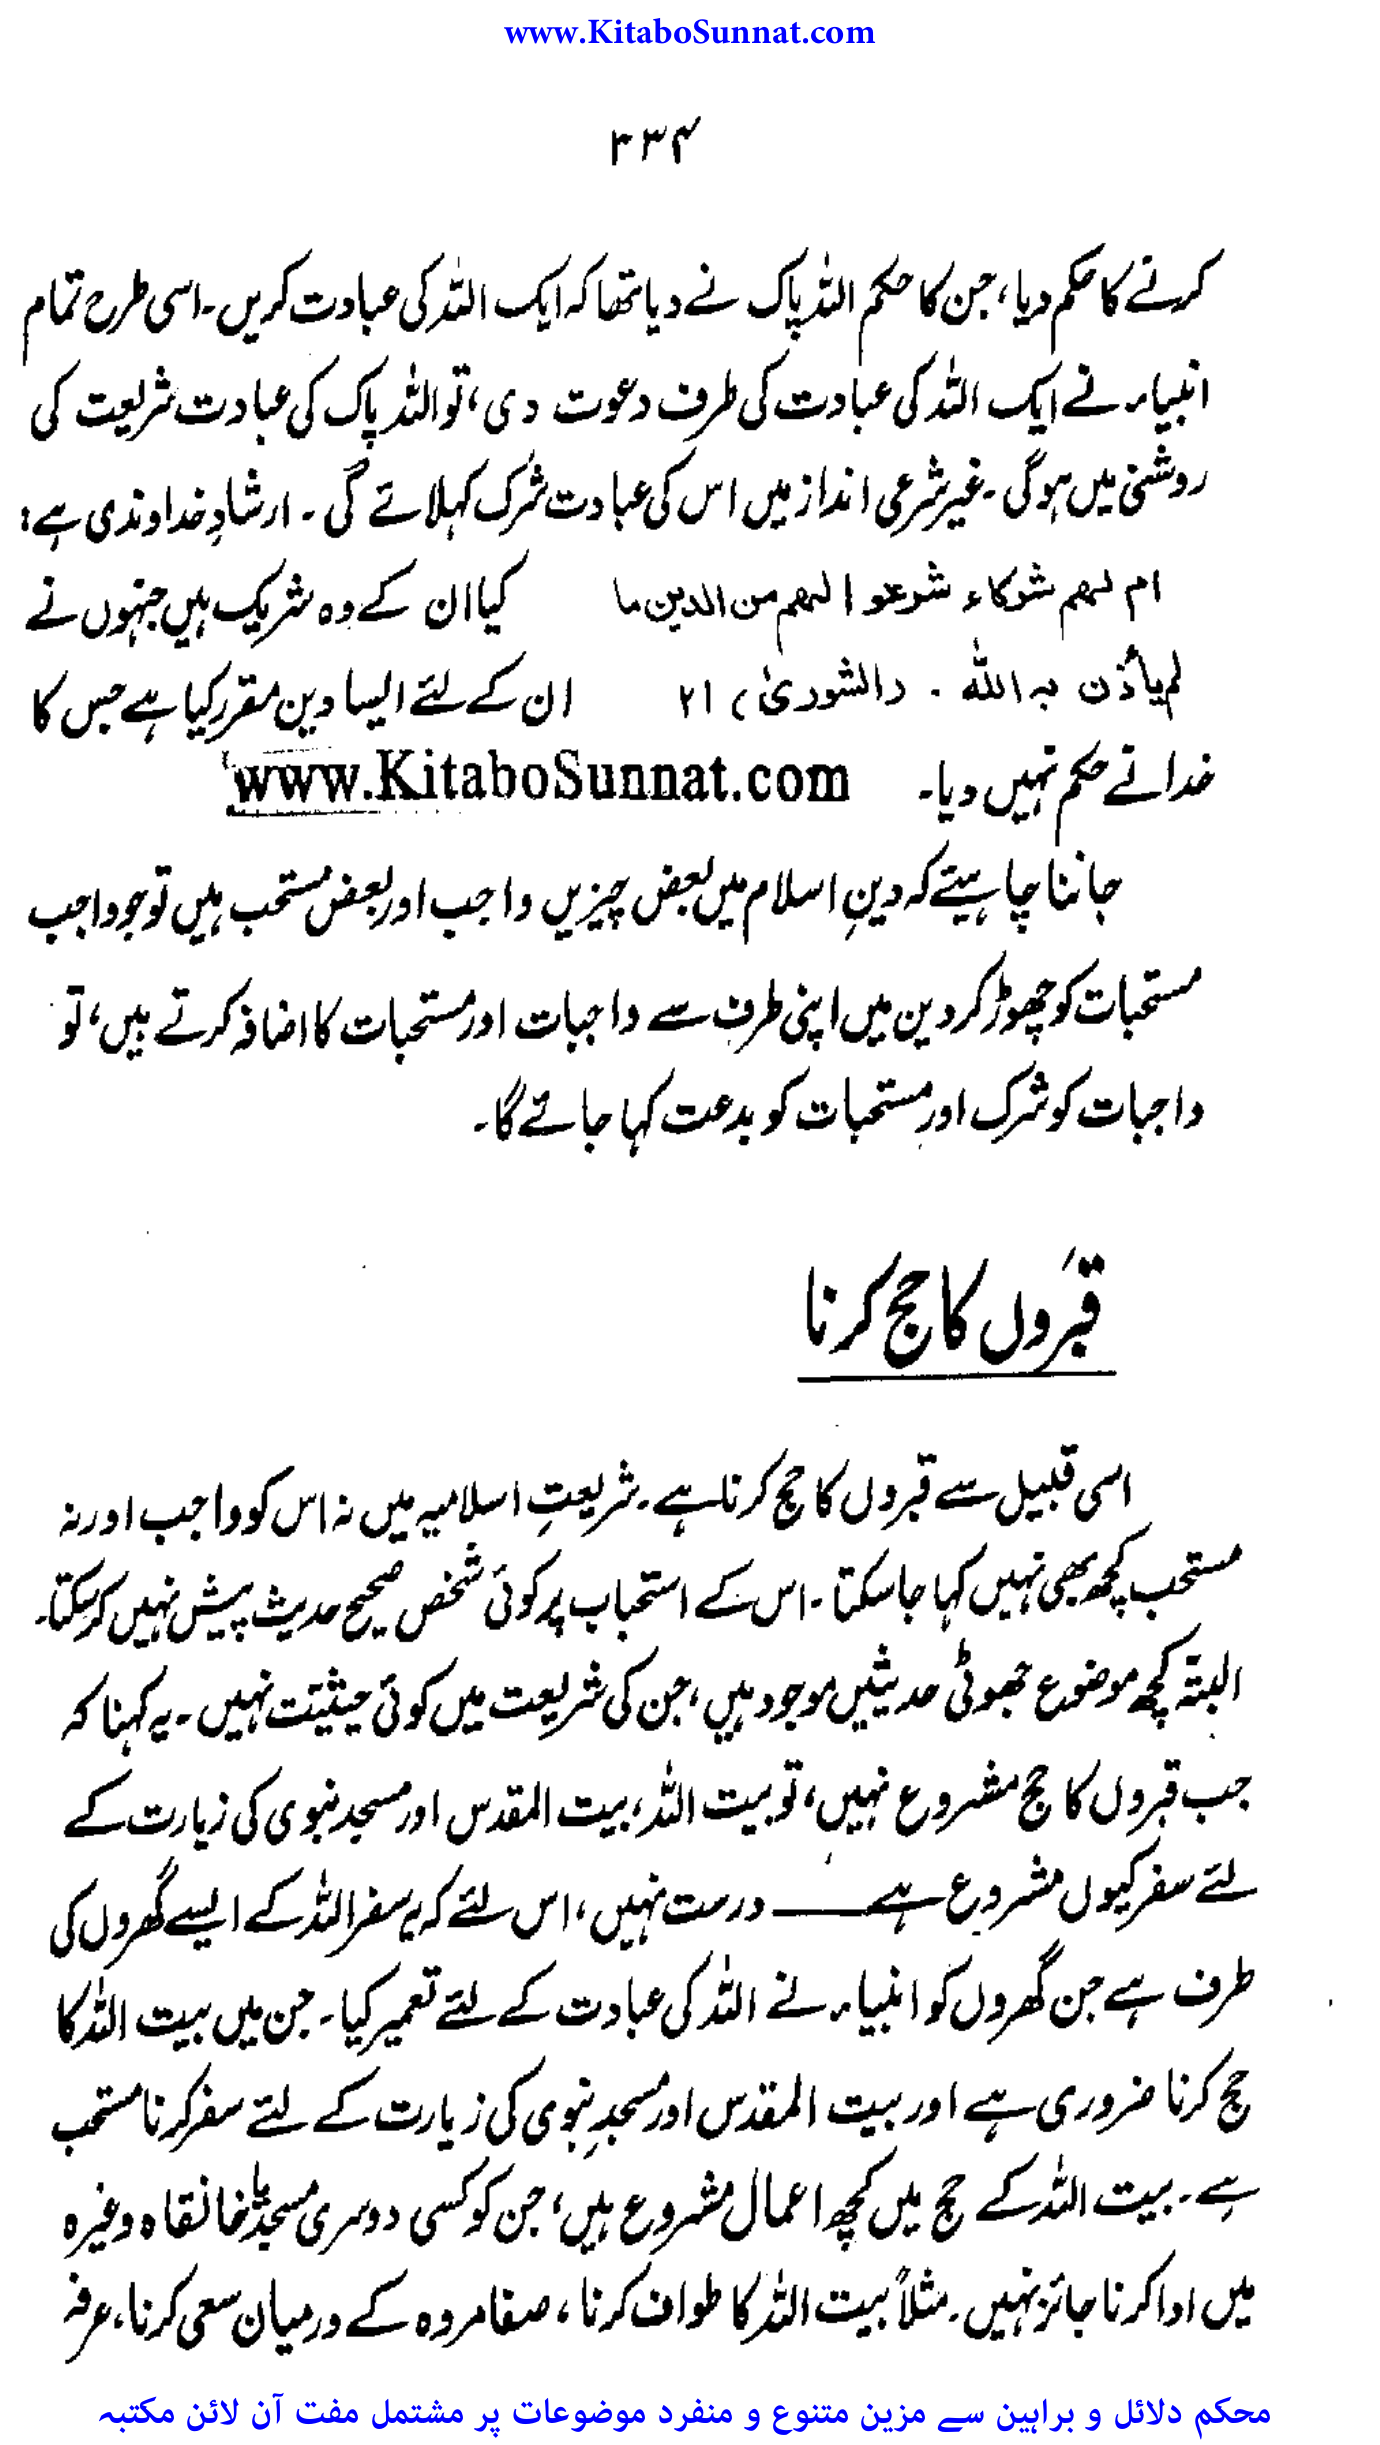 www.KitaboSunnat.com
۲۳۴
کرنے کا حکم دیا، جن کا حکم اللہ پاک نے دیا تھا کہ ایک اللہ کی عبادت کریں۔ اسی طرح تمام
انبیاء نے ایک اللہ کی عبادت کی طرف دعوت دی، تو اللہ پاک کی عبادت شریعت کی
روشنی میں ہوگی۔ غیر شرعی انداز میں اس کی عبادت شرک کہلائے گی۔ ارشادِ خداوندی ہے:
ام لہم شرکاء شرعوا لہم من الدین ما کیا ان کے وہ شریک ہیں جنہوں نے
لم یأذن بہ اللہ ۔ (الشوریٰ) ۲۱ ان کے لئے ایسا دین مقرر کیا ہے جس کا
خدا نے حکم نہیں دیا۔ www.KitaboSunnat.com
جاننا چاہیئے کہ دینِ اسلام میں بعض چیزیں واجب اور بعض مستحب ہیں تو جو واجب
مستحبات کو چھوڑ کر دین میں اپنی طرف سے واجبات اور مستحبات کا اضافہ کرتے ہیں، تو
واجبات کو شرک اور مستحبات کو بدعت کہا جائے گا۔
قبروں کا حج کرنا
اسی قبیل سے قبروں کا حج کرنا ہے۔ شریعتِ اسلامیہ میں نہ اس کو واجب اور نہ
مستحب کچھ بھی نہیں کہا جا سکتا۔ اس کے استحباب پر کوئی شخص صحیح حدیث پیش نہیں کرسکتا۔
البتہ کچھ موضوع جھوٹی حدیثیں موجود ہیں، جن کی شریعت میں کوئی حیثیت نہیں۔ یہ کہنا کہ
جب قبروں کا حج مشروع نہیں، تو بیت اللہ، بیت المقدس اور مسجد نبوی کی زیارت کے
لئے سفر کیوں مشروع ہے ــــــ درست نہیں، اس لئے کہ یہ سفر اللہ کے ایسے گھروں کی
طرف ہے جن گھروں کو انبیاء نے اللہ کی عبادت کے لئے تعمیر کیا۔ جن میں بیت اللہ کا
حج کرنا ضروری ہے اور بیت المقدس اور مسجدِ نبوی کی زیارت کے لئے سفر کرنا مستحب
ہے۔ بیت اللہ کے حج میں کچھ اعمال مشروع ہیں، جن کو کسی دوسری مسجد یا خانقاہ وغیرہ
میں ادا کرنا جائز نہیں۔ مثلاً بیت اللہ کا طواف کرنا، صفا مروہ کے درمیان سعی کرنا، عرفہ
محکم دلائل و براہین سے مزین متنوع و منفرد موضوعات پر مشتمل مفت آن لائن مکتبہ